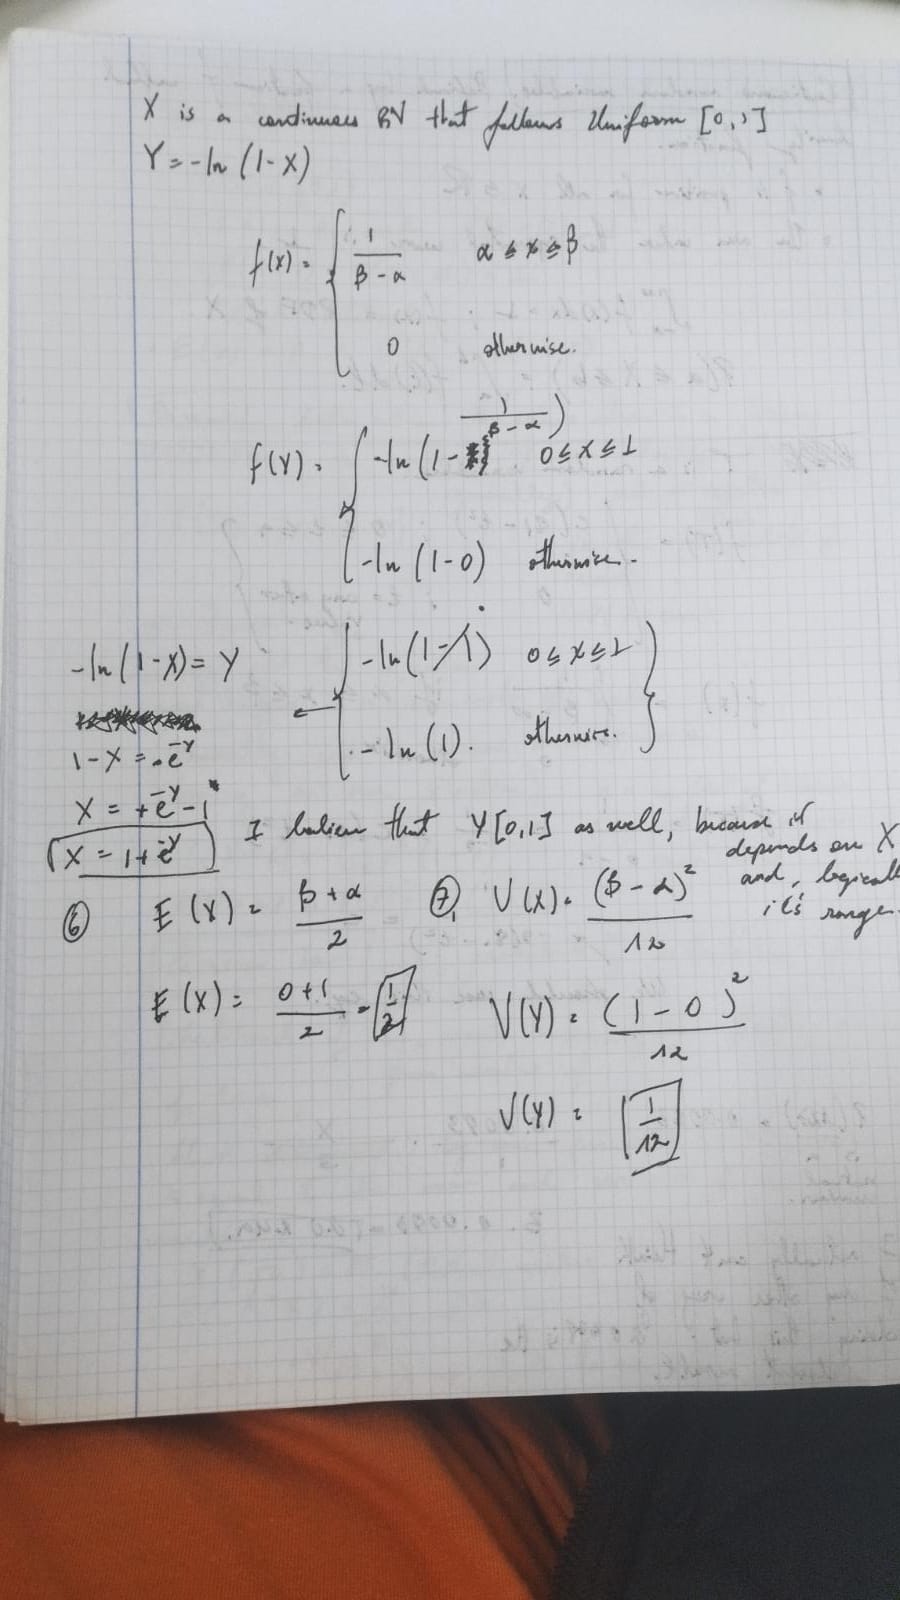 X is a continuous RV that follows Uniform [0,1]
Y = -ln (1-X)
f(x) = { 1/(β - α)   α ≤ x ≤ β
0   otherwise.
f(Y) = { -ln (1 - 1/(β - α))   0 ≤ x ≤ 1
-ln (1-0)   otherwise.
{ -ln (1-1)   0 ≤ x ≤ 1 }
-ln (1).   otherwise.
←
-ln (1-X) = Y
1-X = -e^-Y
X = +e^-Y - 1
X = 1+e^-Y
I believe that Y[0,1] as well, because it
depends on X
and, logically
it's range.
⑥ E(X) = (β + α)/2
E(X) = (0+1)/2 = 1/2
⑦, V(X) = (β - α)²/12
V(Y) = (1 - 0)²/12
V(Y) = 1/12